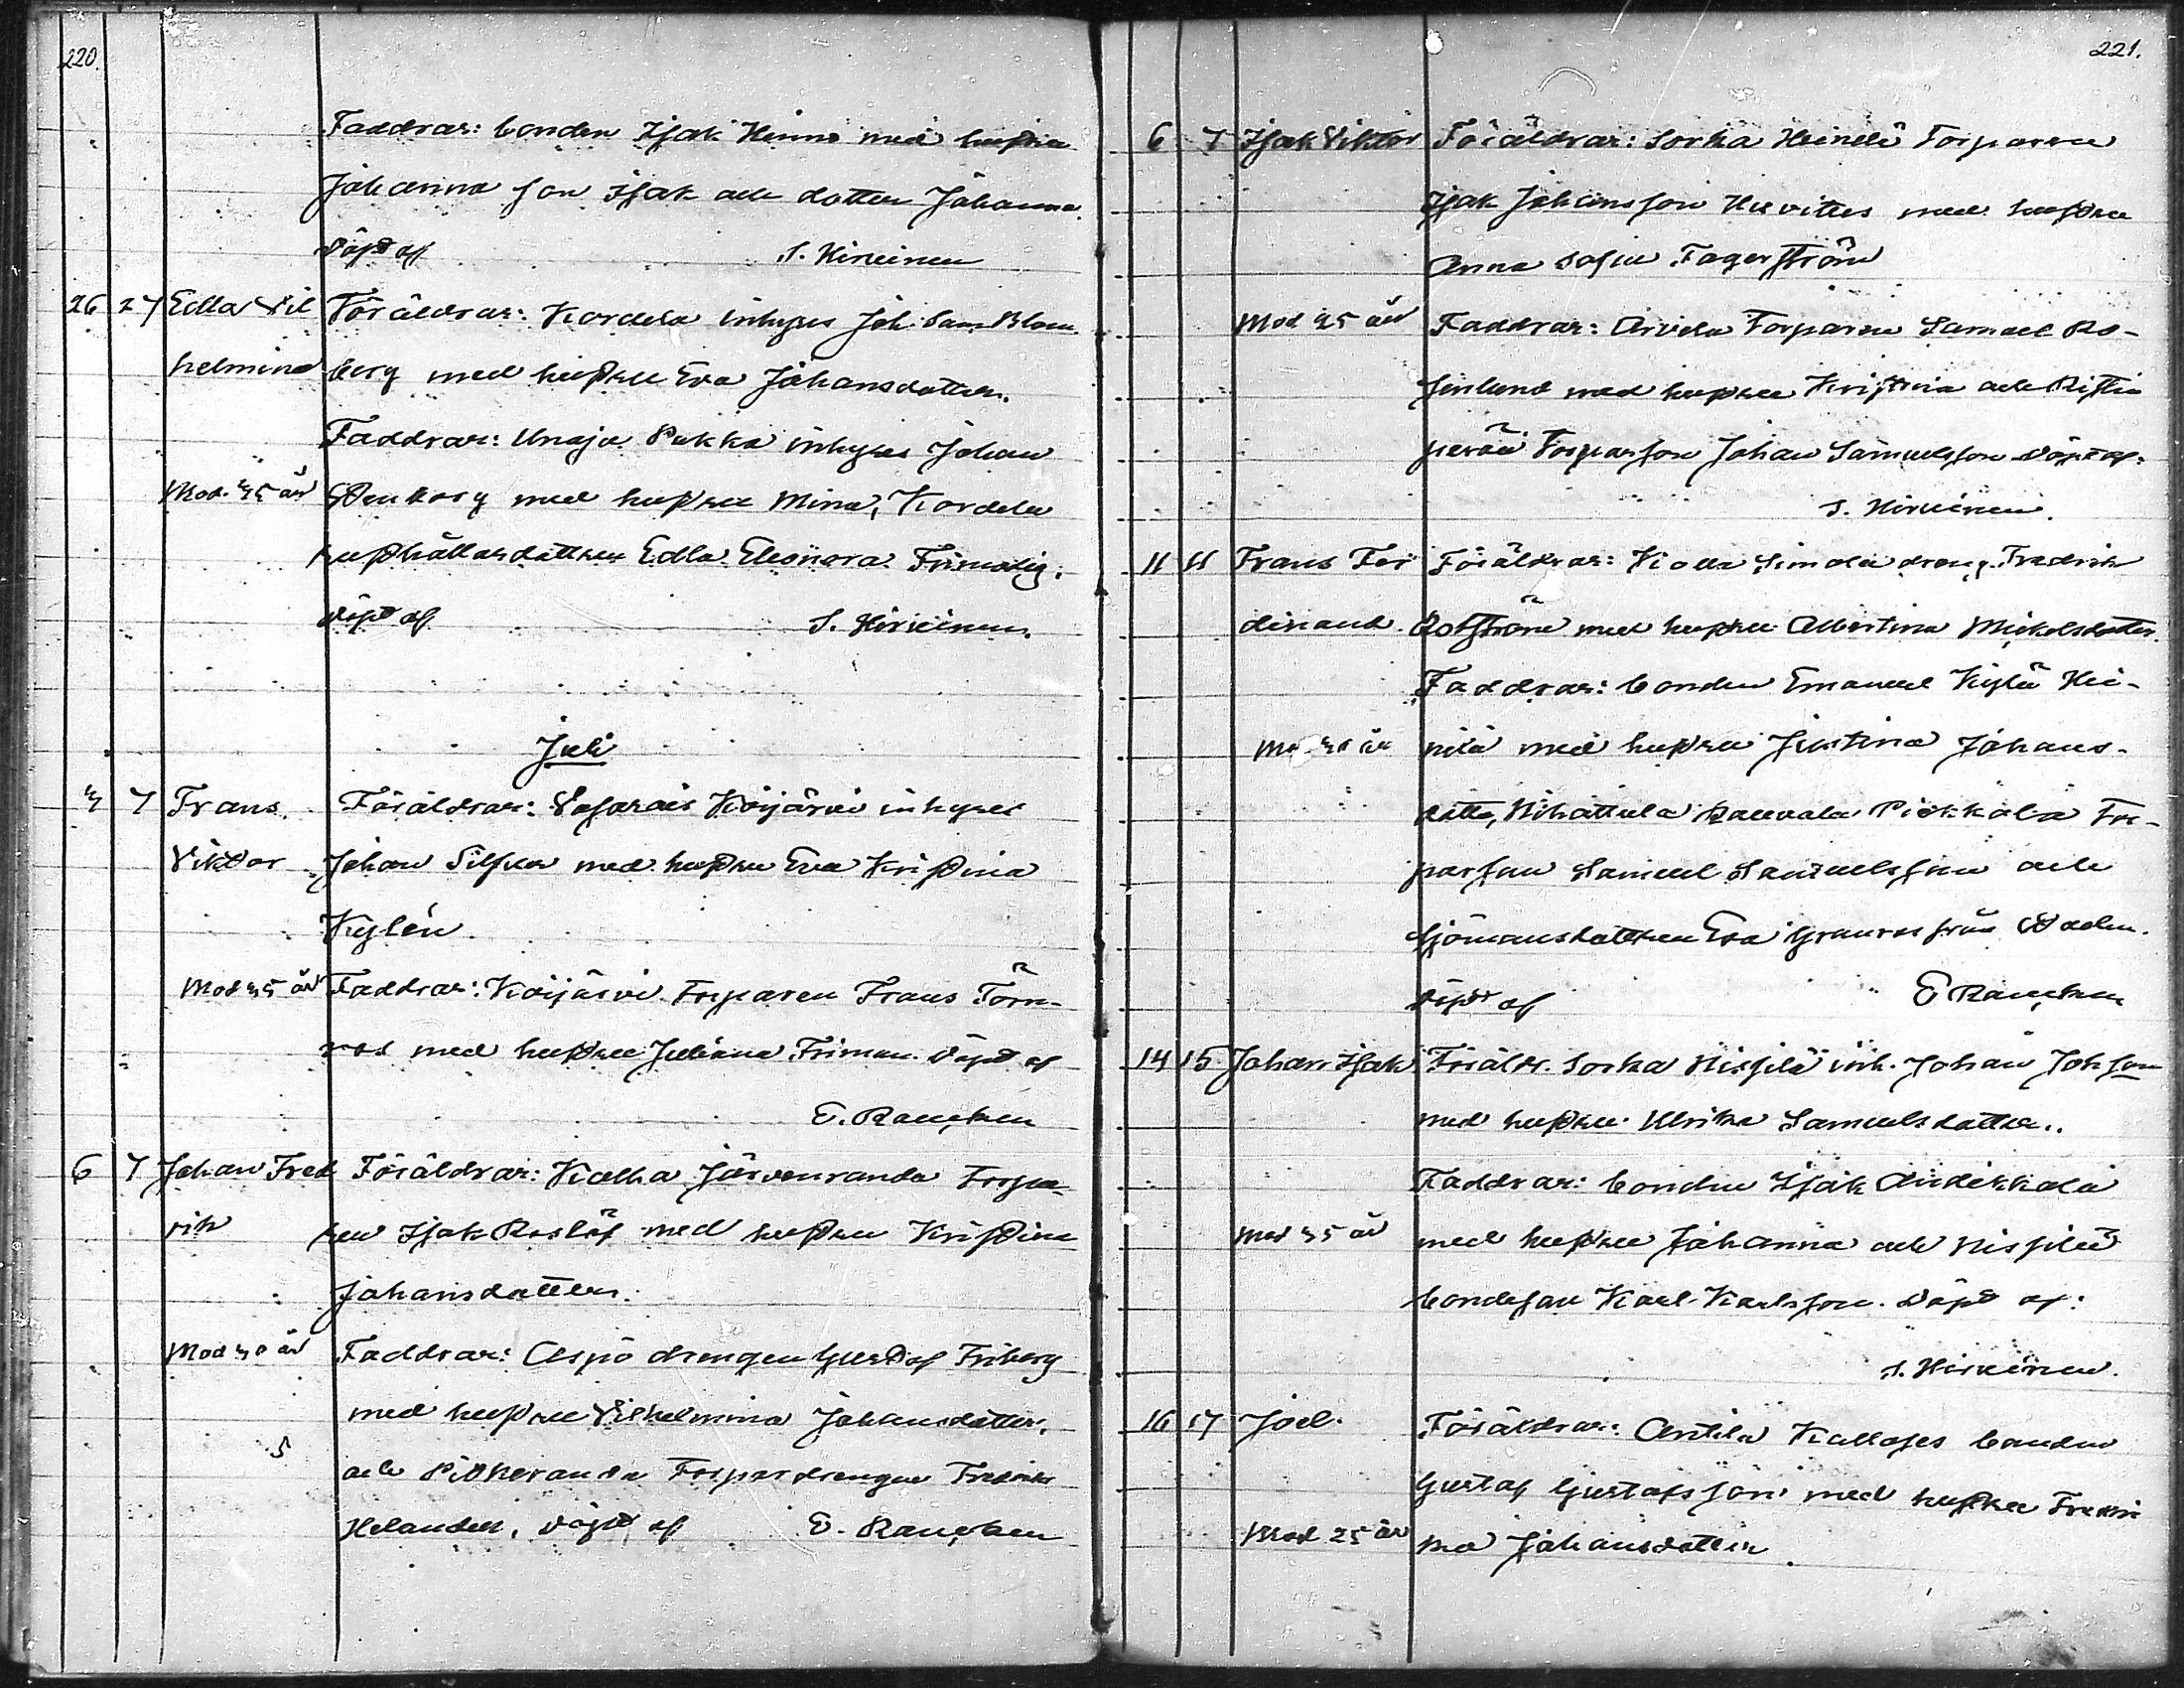 220.
Faddrar: bonden Isak Heinno med hustru
Johanna son Isak och dotter Johanna.
döpt af S. Hirvinen
26 27 Edla Vil Föräldrar: Kordela inhyses Joh. Sam Blom
helmina berg med hustru Eva Johansdotter.
Faddrar: Unaja Pukka inhyses Johan
Mod. 35 år Stenborg med hustru Mina, Kordela
hushållardottren Edla Eleonora Frimodig.
döpt af S. Hirvinen.
Juli
3 7 Frans Föräldrar: Vasarais Koijärvi inhyses
Viktor Johan Silfver med hustru Eva Kristina
Kylén
Mod 35 år Faddrar: Koijärvi Torparen Frans Törn-
ros med hustru Juliana Friman. döpt af
E. Rancken
6 7 Johan Fred Föräldrar: Kolla Järvenranda Torpa-
rik ren Isak Roslöf med hustru Kristina
Johansdotter.
Mod 30 år Faddrar: Aspo drengen Gustaf Friberg
med hustru Vilhelmina Johansdotter.
och Pitkäranda Torpardrengen Fredrik
Helander. döpt af E. Rancken
221.
6 7 Isak Viktor Föräldrar: Sorka Heinelä Torparen
Isak Johansson med hustru
Anna Sofia Fagerström
Mod 25 år Faddrar: Arvela Torparen Samuel Ro-
senlund med hustru Kristina och Risti
perän Torparson Johan Samuelsson döpt af:
S. Hirvinen.
11 11 Frans Fer Föräldrar: Kolla Simola dreng Fredrik
dinand. Rosström med hustru Albertina Mickelsdotter.
Faddrar: bonden Emanuel Kylä Hei-
Mod 30 år nilä med hustru Justina Johans-
dotter, Vihattula Rauvola Piekkala Tor-
parson Samuel Samuelsson och
sjömansdottren Eva Granros från staden.
döpt af E Rancken
14 15 Johan Isak Föräldr. Sorka Nissilä inh. Johan Johsson
med hustru Ulrika Samuelsdotter..
Faddrar: bonden Isak Andikkala
Mod 35 år med hustru Johanna och Nissilä
bondeson Karl Karlsson. döpt af:
S. Hirvinen.
16 17 Joel. Föräldrar: Antila Kallases bonden
Gustaf Gustafsson med hustru Fredri
Mod 25 år ka Johansdotter